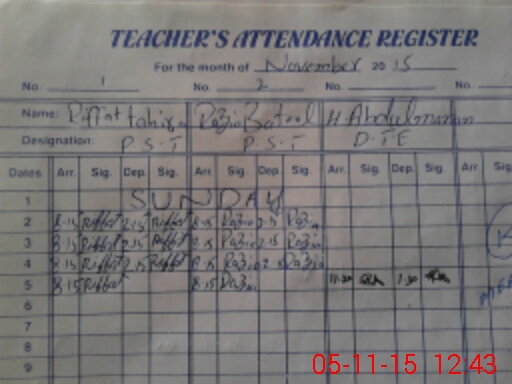 TEACHER'S ATTENDANCE REGISTER
For the month of November 2015
No. 1 No. 2 No. No.
Name: Riffat tahira Razia Batool H. Abdul manan
Designation: P.S.T P.S.T D.T.E
Dates Arr. Sig. Dep. Sig. Arr. Sig. Dep. Sig. Arr. Sig. Dep. Sig. Arr. Sig.
1 SUNDAY
2 8-15 Riffat 2-15 Riffat 8-15 Razia 2-15 Razia
3 8-15 Riffat 2-15 Riffat 8-15 Razia 2-15 Razia
4 8-15 Riffat 2-15 Riffat 8-15 Razia Razia
5 8-15 Riffat 8-15 Razia 11-30 1-30
6
7
8
9
05-11-15 12:43